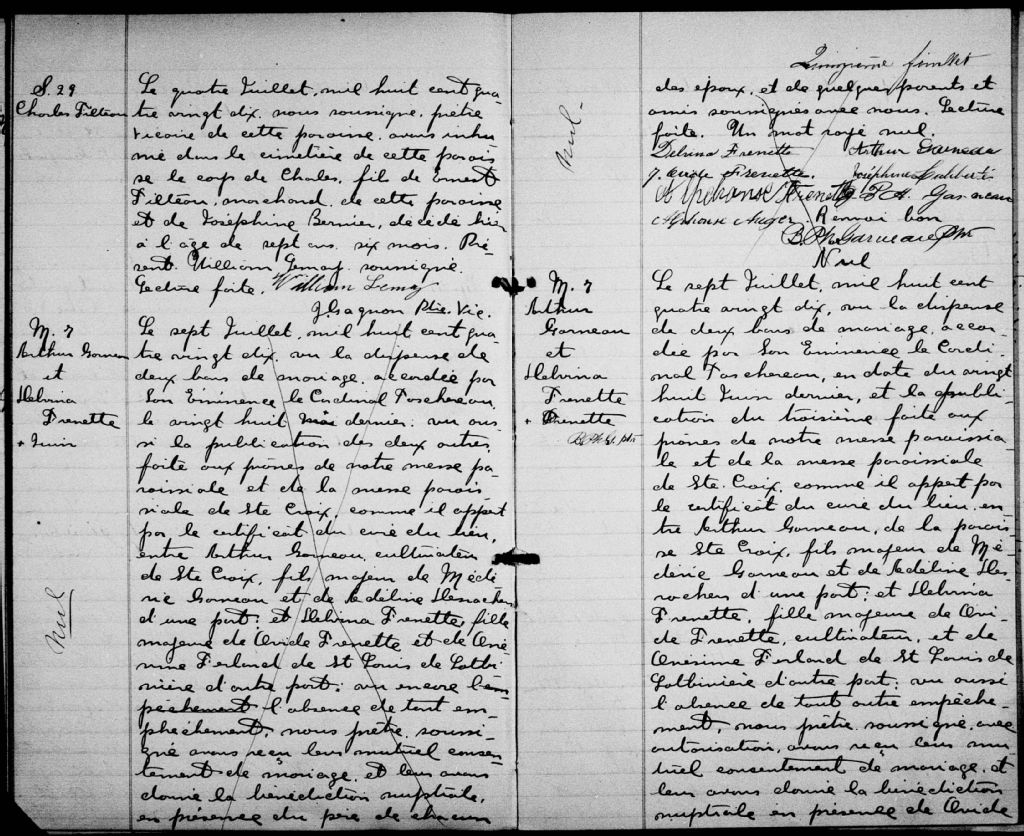 S. 29
Charles Filteau
Le quatre Juillet, mil huit cent qua-
tre vingt dix, nous soussigné, prêtre
vicaire de cette paroisse, avons inhu-
mé dans le cimetière de cette parois-
se le corps de Charles, fil de Ernest
Filteau, marchand, de cette paroisse
et de Joséphine Bernier, décédé hier
à l'âge de sept ans, six mois. Pré-
sent William Lemay soussigné.
Lecture faite. William Lemay
J Gagnon Ptre. Vic.
M. 7
Arthur Garneau
et
Delvina
Frenette
+ Juin
Nul
Le sept Juillet, mil huit cent qua-
tre vingt dix, vu la dispense de
deux bans de mariage, accordée par
Son Eminence le Cardinal Taschereau
le vingt huit + dernier: vu aus-
si la publication des deux autres
faite aux prônes de notre messe pa-
roissiale et de la messe parois-
siale de Ste Croix, comme il appert
par le certificat du curé du lieu,
entre Arthur Garneau, cultivateur
de Ste Croix, fils majeur de Médé-
ric Garneau et de Adéline Desrochers
d'une part; et Delvina Frenette, fille
majeure de Ovide Frenette et de Oné-
sime Ferland de St Louis de Lotbi-
nière d'autre part: vu encore l'em-
pêchement l'absence de tout em-
phêchement, nous prêtre, soussi-
gné avons reçu leur mutuel consen-
tement de mariage, et leur avons
donné la bénédiction nuptiale,
en présence du père de chacun
Quinzième feuillet
Nul.
des époux, et de quelques parents et
amis soussignés avec nous. Lecture
faite. Un mot rayé nul.
Delvina Frenette Arthur Garneau
Frenette. Joséphine
Alphonse Frenette P. A. Garneau
Alphonse Auger Renvoi bon
B. Ph Garneau Ptre
Nul
M. 7
Arthur
Garneau
et
Delvina
Frenette
+ Frenette
B. Ph. G. ptre
Le sept Juillet, mil huit cent
quatre vingt dix, vu la dispense
de deux bans de mariage, accor-
dée par Son Eminence le Cardi-
nal Taschereau, en date du vingt
huit Juin dernier, et la publi-
cation du troisième faite aux
prônes de notre messe paroissia-
le et de la messe paroissiale
de Ste. Croix, comme il appert par
le certificat du curé du lieu, en-
tre Arthur Garneau, de la parois-
se Ste Croix, fils majeur de Mé-
déric Garneau et de Adéline Des-
rochers d'une part; et Delvina
Frenette, fille majeure de Ovi-
de Frenette, cultivateur, et de
Onésime Ferland de St Louis de
Lotbinière d'autre part: vu aussi
l'absence de tout autre empêche-
ment, nous prêtre, soussigné, avec
autorisation, avons reçu leur mu-
tuel consentement de mariage, et
leur avons donné la bénédiction
nuptiale en présence de Ovide